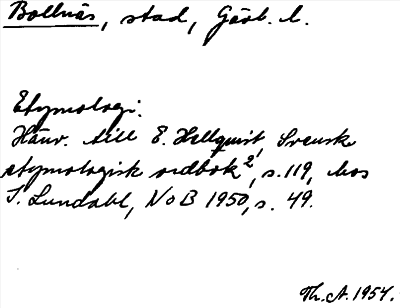 Bollnäs, stad, Gävl. l.
Etymologi:
Hänv. till E. Hellquist, Svensk
etymologisk ordbok², s. 119, hos
I. Lundahl, NoB 1950, s. 49.
Th. A. 1954.